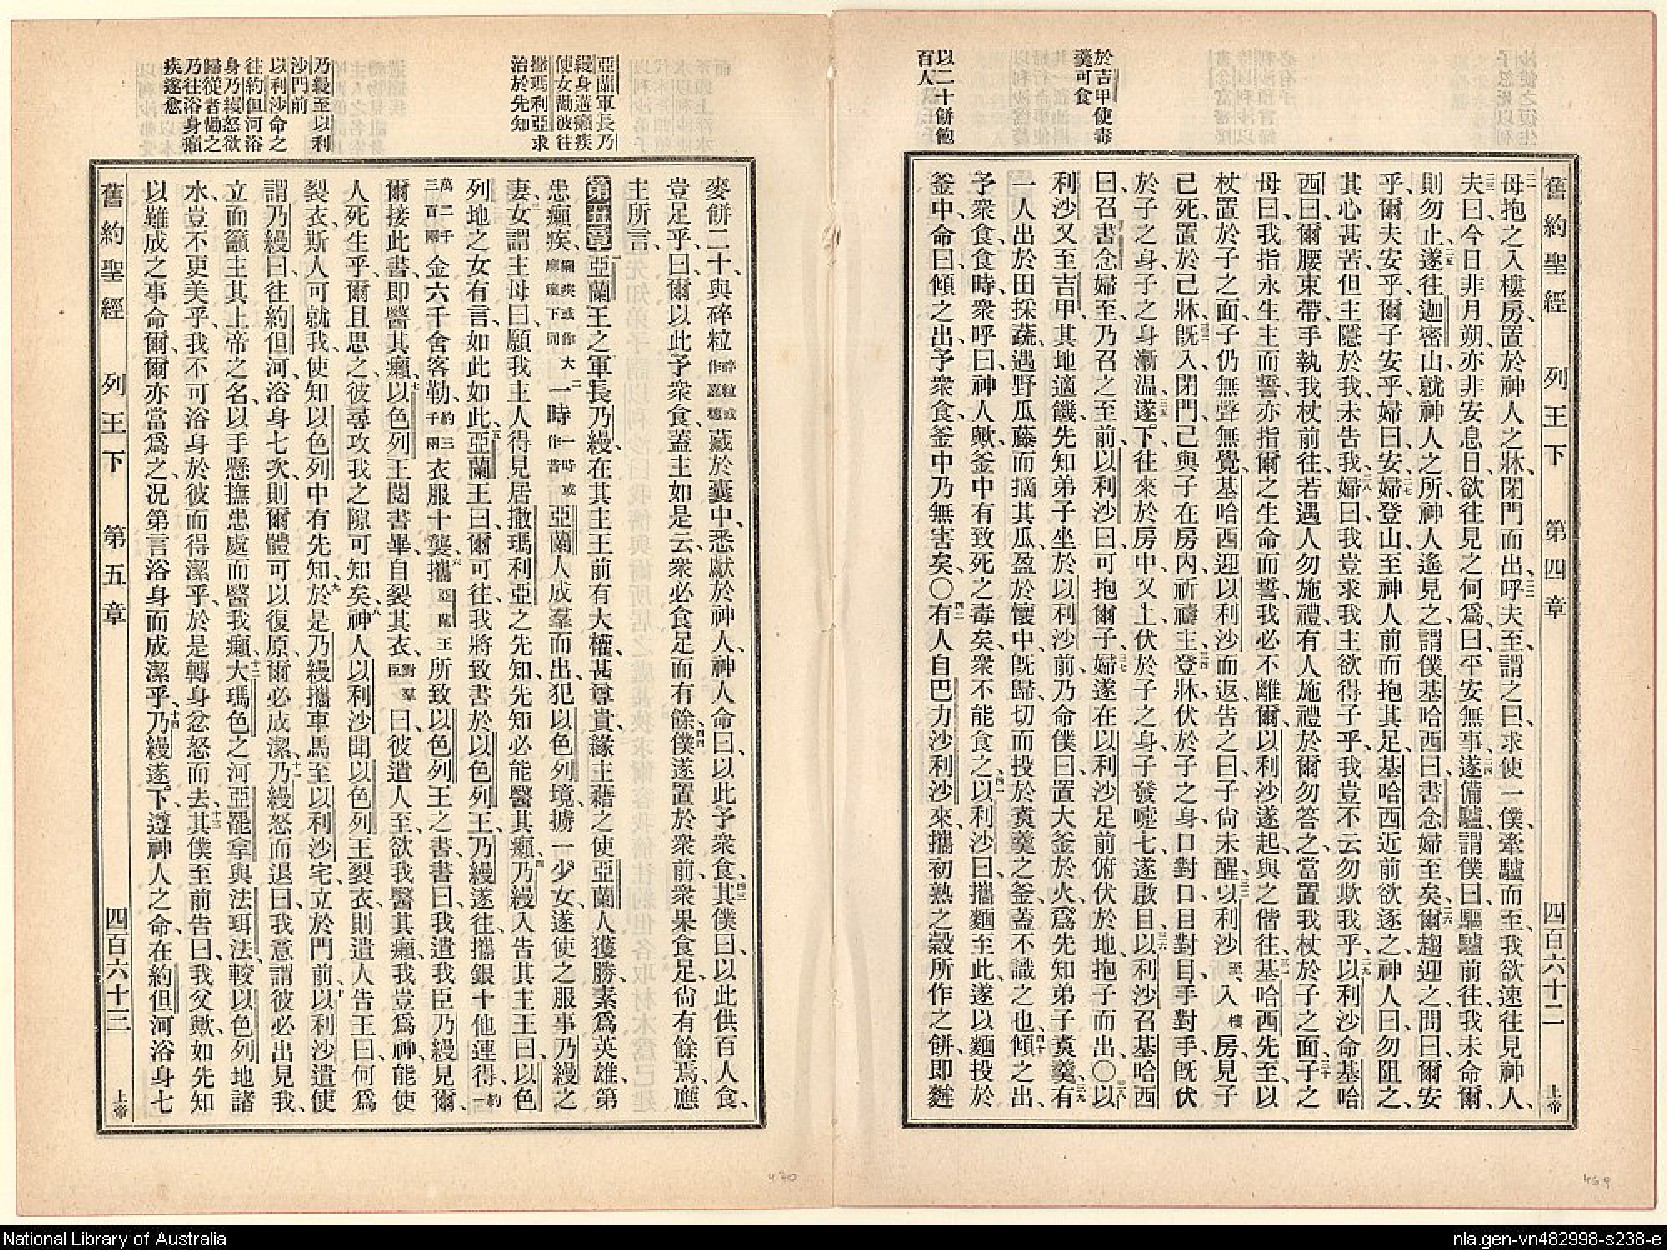 子使之復生
於吉甲使毒
羹可食
以二十餅飽
百人
舊約聖經 列王下 第四章 四百六十二 上帝
母抱之入樓房、置於神人之牀、閉門而出、呼夫至、謂之曰、求使一僕牽驢而至、我欲速往見神人、
夫曰、今日非月朔、亦非安息日、欲往見之何爲、曰、平安無事、遂備驢、謂僕曰、驅驢前往、我未命爾、
則勿止、遂往迦密山、就神人之所、神人遙見之、謂僕基哈西曰、書念婦至矣、爾趨迎之、問曰、爾安
乎、爾夫安乎、爾子安乎、婦曰、安、婦登山、至神人前、而抱其足、基哈西近前欲逐之、神人曰、勿阻之、
其心甚苦、但主隱於我、未告我、婦曰、我豈求我主欲得子乎、我豈不云勿欺我乎、以利沙命基哈
西曰、爾腰束帶、手執我杖前往、若遇人勿施禮、有人施禮於爾勿答之、當置我杖於子之面、子之
母曰、我指永生主而誓、亦指爾之生命而誓、我必不離爾、以利沙遂起、與之偕往、基哈西先至、以
杖置於子之面、子仍無聲無覺、基哈西迎以利沙而返、告之曰、子尙未醒、以利沙至、入樓房、見子
已死、置於己牀、旣入閉門、己與子在房內、祈禱主、登牀伏於子之身、口對口、目對目、手對手、旣伏
於子之身、子之身漸温、遂下、往來於房中、又上伏於子之身、子發嚏七、遂啟目、以利沙召基哈西
曰、召書念婦至、乃召之、至前、以利沙曰、可抱爾子、婦遂在以利沙足前俯伏於地、抱子而出、〇以
利沙又至吉甲、其地適饑、先知弟子坐於以利沙前、乃命僕曰、置大釜於火、爲先知弟子煑羹、有
一人出於田採蔬、遇野瓜藤、而摘其瓜、盈於懷中、旣歸、切而投於煑羹之釜、蓋不識之也、傾之出、
予衆食、食時、衆呼曰、神人歟、釜中有致死之毒矣、衆不能食之、以利沙曰、攜麵至此、遂以麵投於
釜中、命曰、傾之出、予衆食、釜中乃無害矣、〇有人自巴力沙利沙來、攜初熟之穀所作之餅、卽麰
亞蘭軍長乃
縵身遘癩疾
使女勸彼往
撒瑪利亞求
治於先知
乃縵至以利
沙門前
以利沙命之
往約但河浴
身乃縵怒欲
歸從者勸之
乃往浴身癩
疾遂愈
麥餅二十、與碎粒碎粒或作嘉穗藏於囊中、悉獻於神人、神人命曰、以此予衆食、其僕曰、以此供百人食、
豈足乎、曰、爾以此予衆食、蓋主如是云、衆必食足而有餘、僕遂置於衆前、衆果食足、尙有餘焉、應
主所言、
第五章 亞蘭王之軍長乃縵、在其主王前有大權、甚尊貴、緣主藉之使亞蘭人獲勝、素爲英雄、第
患癩疾、 一時一時或作昔亞蘭人成羣而出、犯以色列境、擄一少女、遂使之服事乃縵之
妻、女謂主母曰、願我主人得見居撒瑪利亞之先知、先知必能醫其癩、乃縵入告其主王曰、以色
列地之女有言、如此如此、亞蘭王曰、爾可往、我將致書於以色列王、乃縵遂往、攜銀十他連得、約一
萬二千三百兩金六千舍客勒、約三千兩衣服十襲、攜亞蘭王所致以色列王之書、書曰、我遣我臣乃縵見爾、
爾接此書、卽醫其癩、以色列王閱書畢、自裂其衣、對羣臣曰、彼遣人至、欲我醫其癩、我豈爲神、能使
人死生乎、爾且思之、彼尋攻我之隙可知矣、神人以利沙聞以色列王裂衣、則遣人告王曰、何爲
裂衣、斯人可就我、使知以色列中有先知、於是乃縵攜車馬至以利沙宅、立於門前、以利沙遣使
謂乃縵曰、往約但河浴身七次、則爾體可以復原、爾必成潔、乃縵怒而退曰、我意謂彼必出見我、
立而籲主其上帝之名、以手懸撫患處、而醫我癩、大瑪色之河亞罷拿與法珥法、較以色列地諸
水、豈不更美乎、我不可浴身於彼而得潔乎、於是轉身忿怒而去、其僕至前告曰、我父歟、如先知
以難成之事命爾、爾亦當爲之、况第言浴身而成潔乎、乃縵遂下、遵神人之命、在約但河浴身七
舊約聖經 列王下 第五章 四百六十三 上帝
470
469
National Library of Australia
nla.gen-vn482998-s238-e